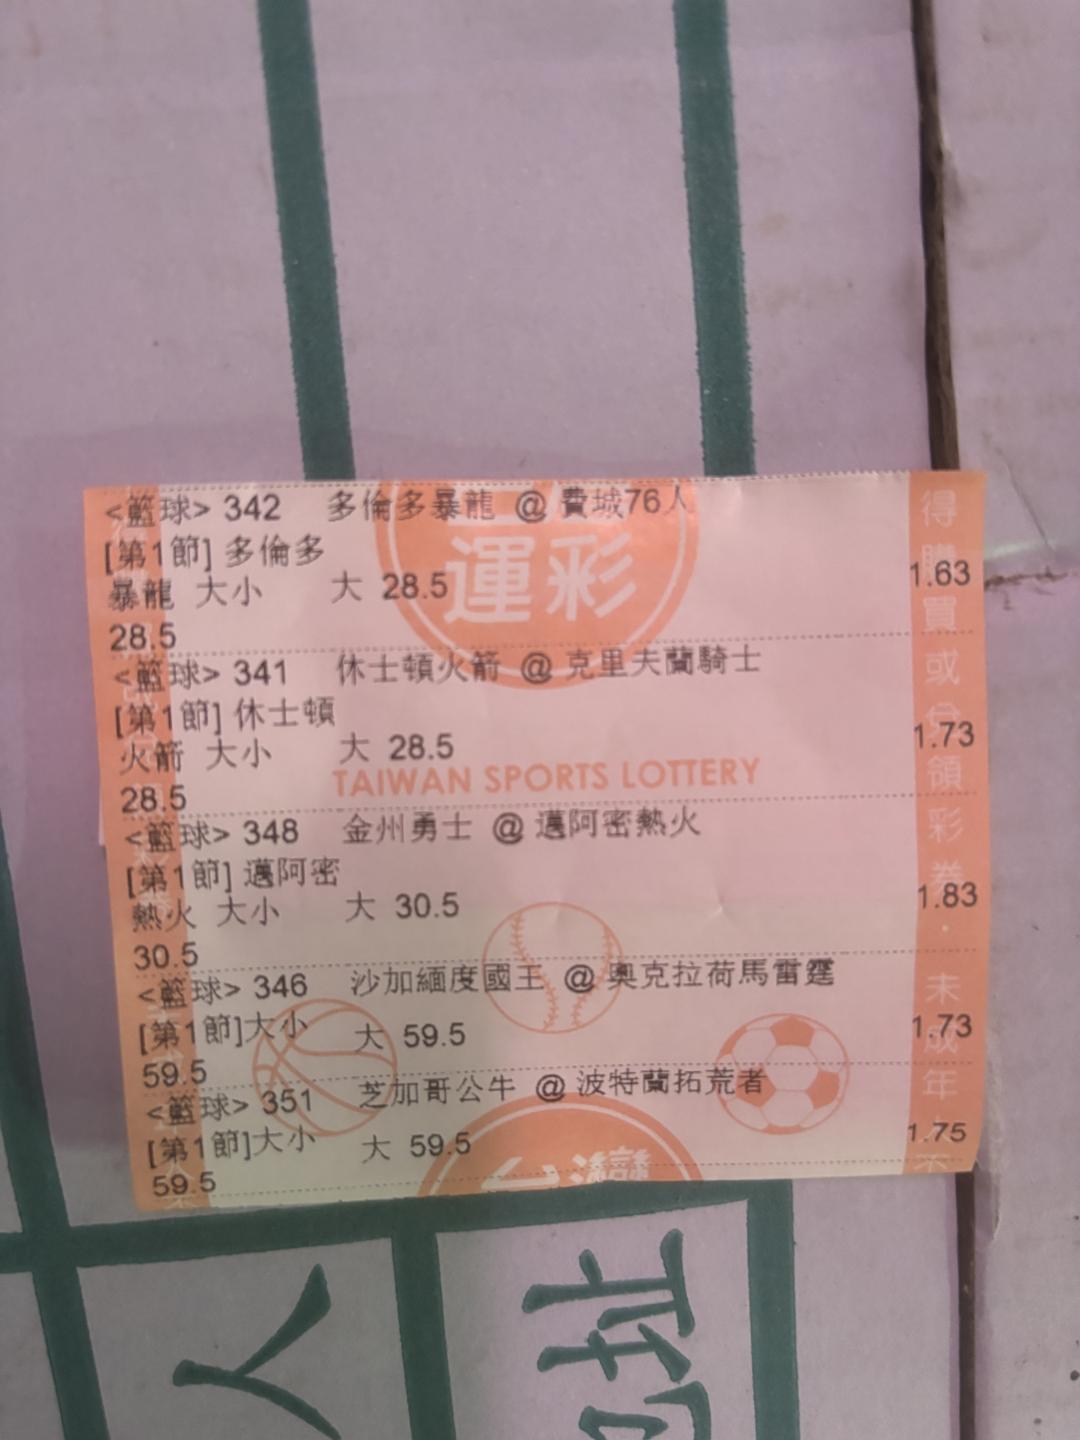 <籃球> 342 多倫多暴龍 @ 費城76人
[第1節] 多倫多
暴龍 大小 大 28.5 1.63
28.5
<籃球> 341 休士頓火箭 @ 克里夫蘭騎士
[第1節] 休士頓
火箭 大小 大 28.5 1.73
28.5
<籃球> 348 金州勇士 @ 邁阿密熱火
[第1節] 邁阿密
熱火 大小 大 30.5 1.83
30.5
<籃球> 346 沙加緬度國王 @ 奧克拉荷馬雷霆
[第1節]大小 大 59.5 1.73
59.5
<籃球> 351 芝加哥公牛 @ 波特蘭拓荒者
[第1節]大小 大 59.5 1.75
59.5
運彩
TAIWAN SPORTS LOTTERY
台灣
得購買或兌領彩券．未成年
人
址